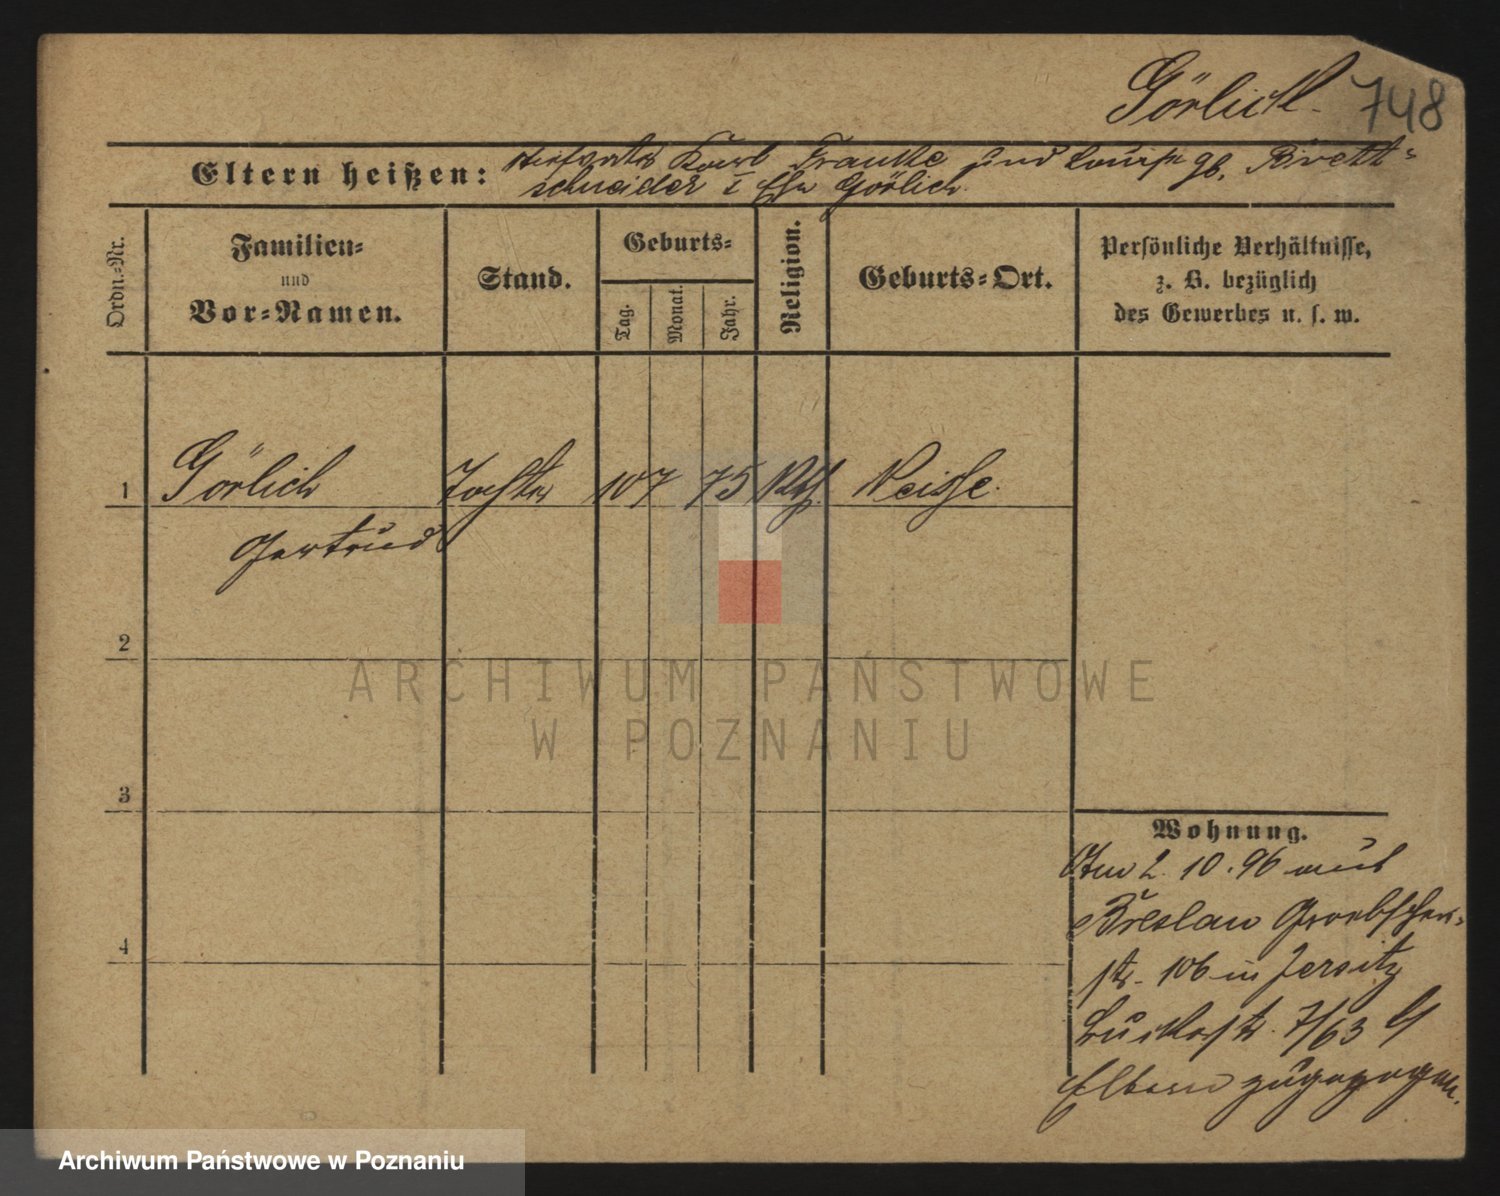 Görlich. 748
Eltern heißen: Stiefvater Karl Franke und Louise gb. Brett-
schneider I Ehe Görlich.
Ordn.-Nr.
Familien-
und
Vor-Namen.
Stand.
Geburts-
Tag.
Monat.
Jahr.
Religion.
Geburts-Ort.
Persönliche Verhältnisse,
z. B. bezüglich
des Gewerbes u. s. w.
1 Görlich Tochter 10 7 75 Kth. Neisse.
Gertrud
2
ARCHIWUM PAŃSTWOWE
W POZNANIU
3
4
Wohnung.
Am 2. 10. 96 aus
Breslau
str. 106 in Jersitz
7/63
Eltern zugezogen.
Archiwum Państwowe w Poznaniu